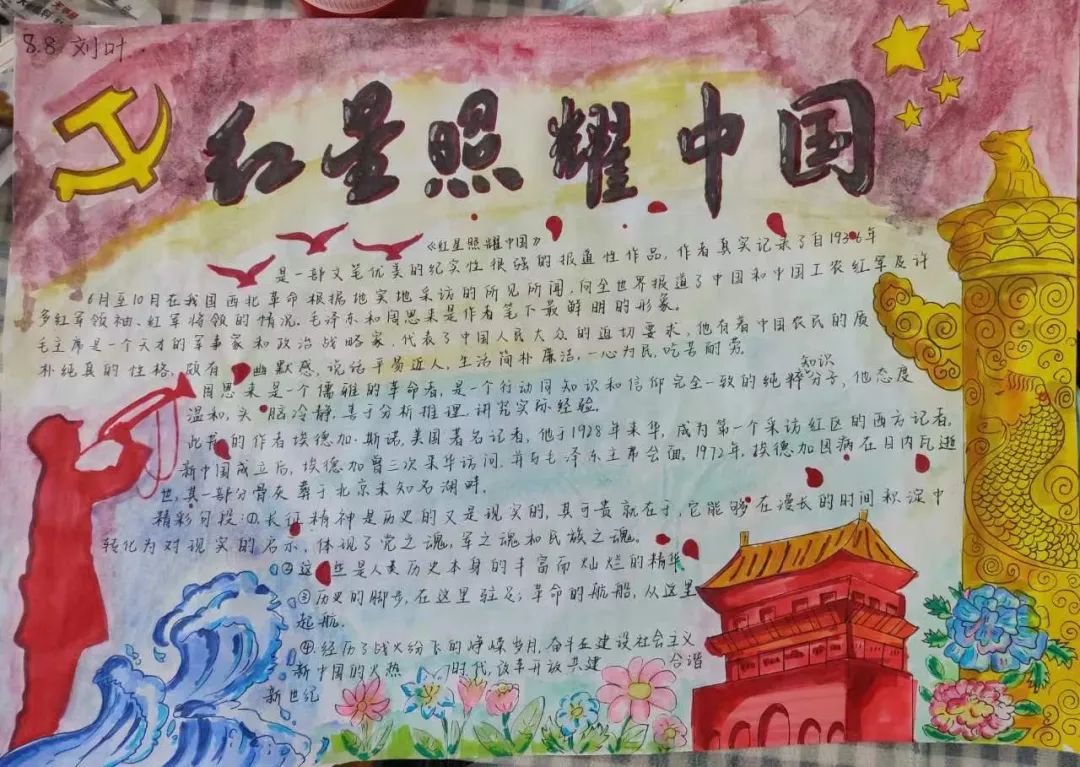 8.8 刘叶
红星照耀中国
《红星照耀中国》
是一部文笔优美的纪实性很强的报道性作品,作者真实记录了自1936年
6月至10月在我国西北革命根据地实地采访的所见所闻,向全世界报道了中国和中国工农红军及许
多红军领袖、红军将领的情况。毛泽东和周恩来是作者笔下最鲜明的形象。
毛主席是一个天才的军事家和政治战略家,代表了中国人民大众的迫切要求,他有着中国农民的质
朴纯真的性格,颇有 幽默感,说话平易近人,生活简朴廉洁,一心为民,吃苦耐劳。
知识
周恩来是一个儒雅的革命者,是一个行动同知识和信仰完全一致的纯粹分子,他态度
温和,头脑冷静,善于分析推理,讲究实际经验。
此书的作者埃德加·斯诺,美国著名记者,他于1928年来华,成为第一个采访红区的西方记者,
新中国成立后,埃德加曾三次来华访问,并与毛泽东主席会面,1972年,埃德加因病在日内瓦逝
世,其一部分骨灰葬于北京未知名湖畔。
精彩片段:①.长征精神是历史的又是现实的,其可贵就在于,它能够在漫长的时间积淀中
转化为对现实的启示,体现了党之魂,军之魂和民族之魂。
②这 些是人类历史本身的丰富而灿烂的精华
③历史的脚步,在这里驻足;革命的航船,从这里
起航.
④.经历了战火纷飞的峥嵘岁月,奋斗在建设社会主义
新中国的火热 时代,改革开放共建 合谐
新世纪